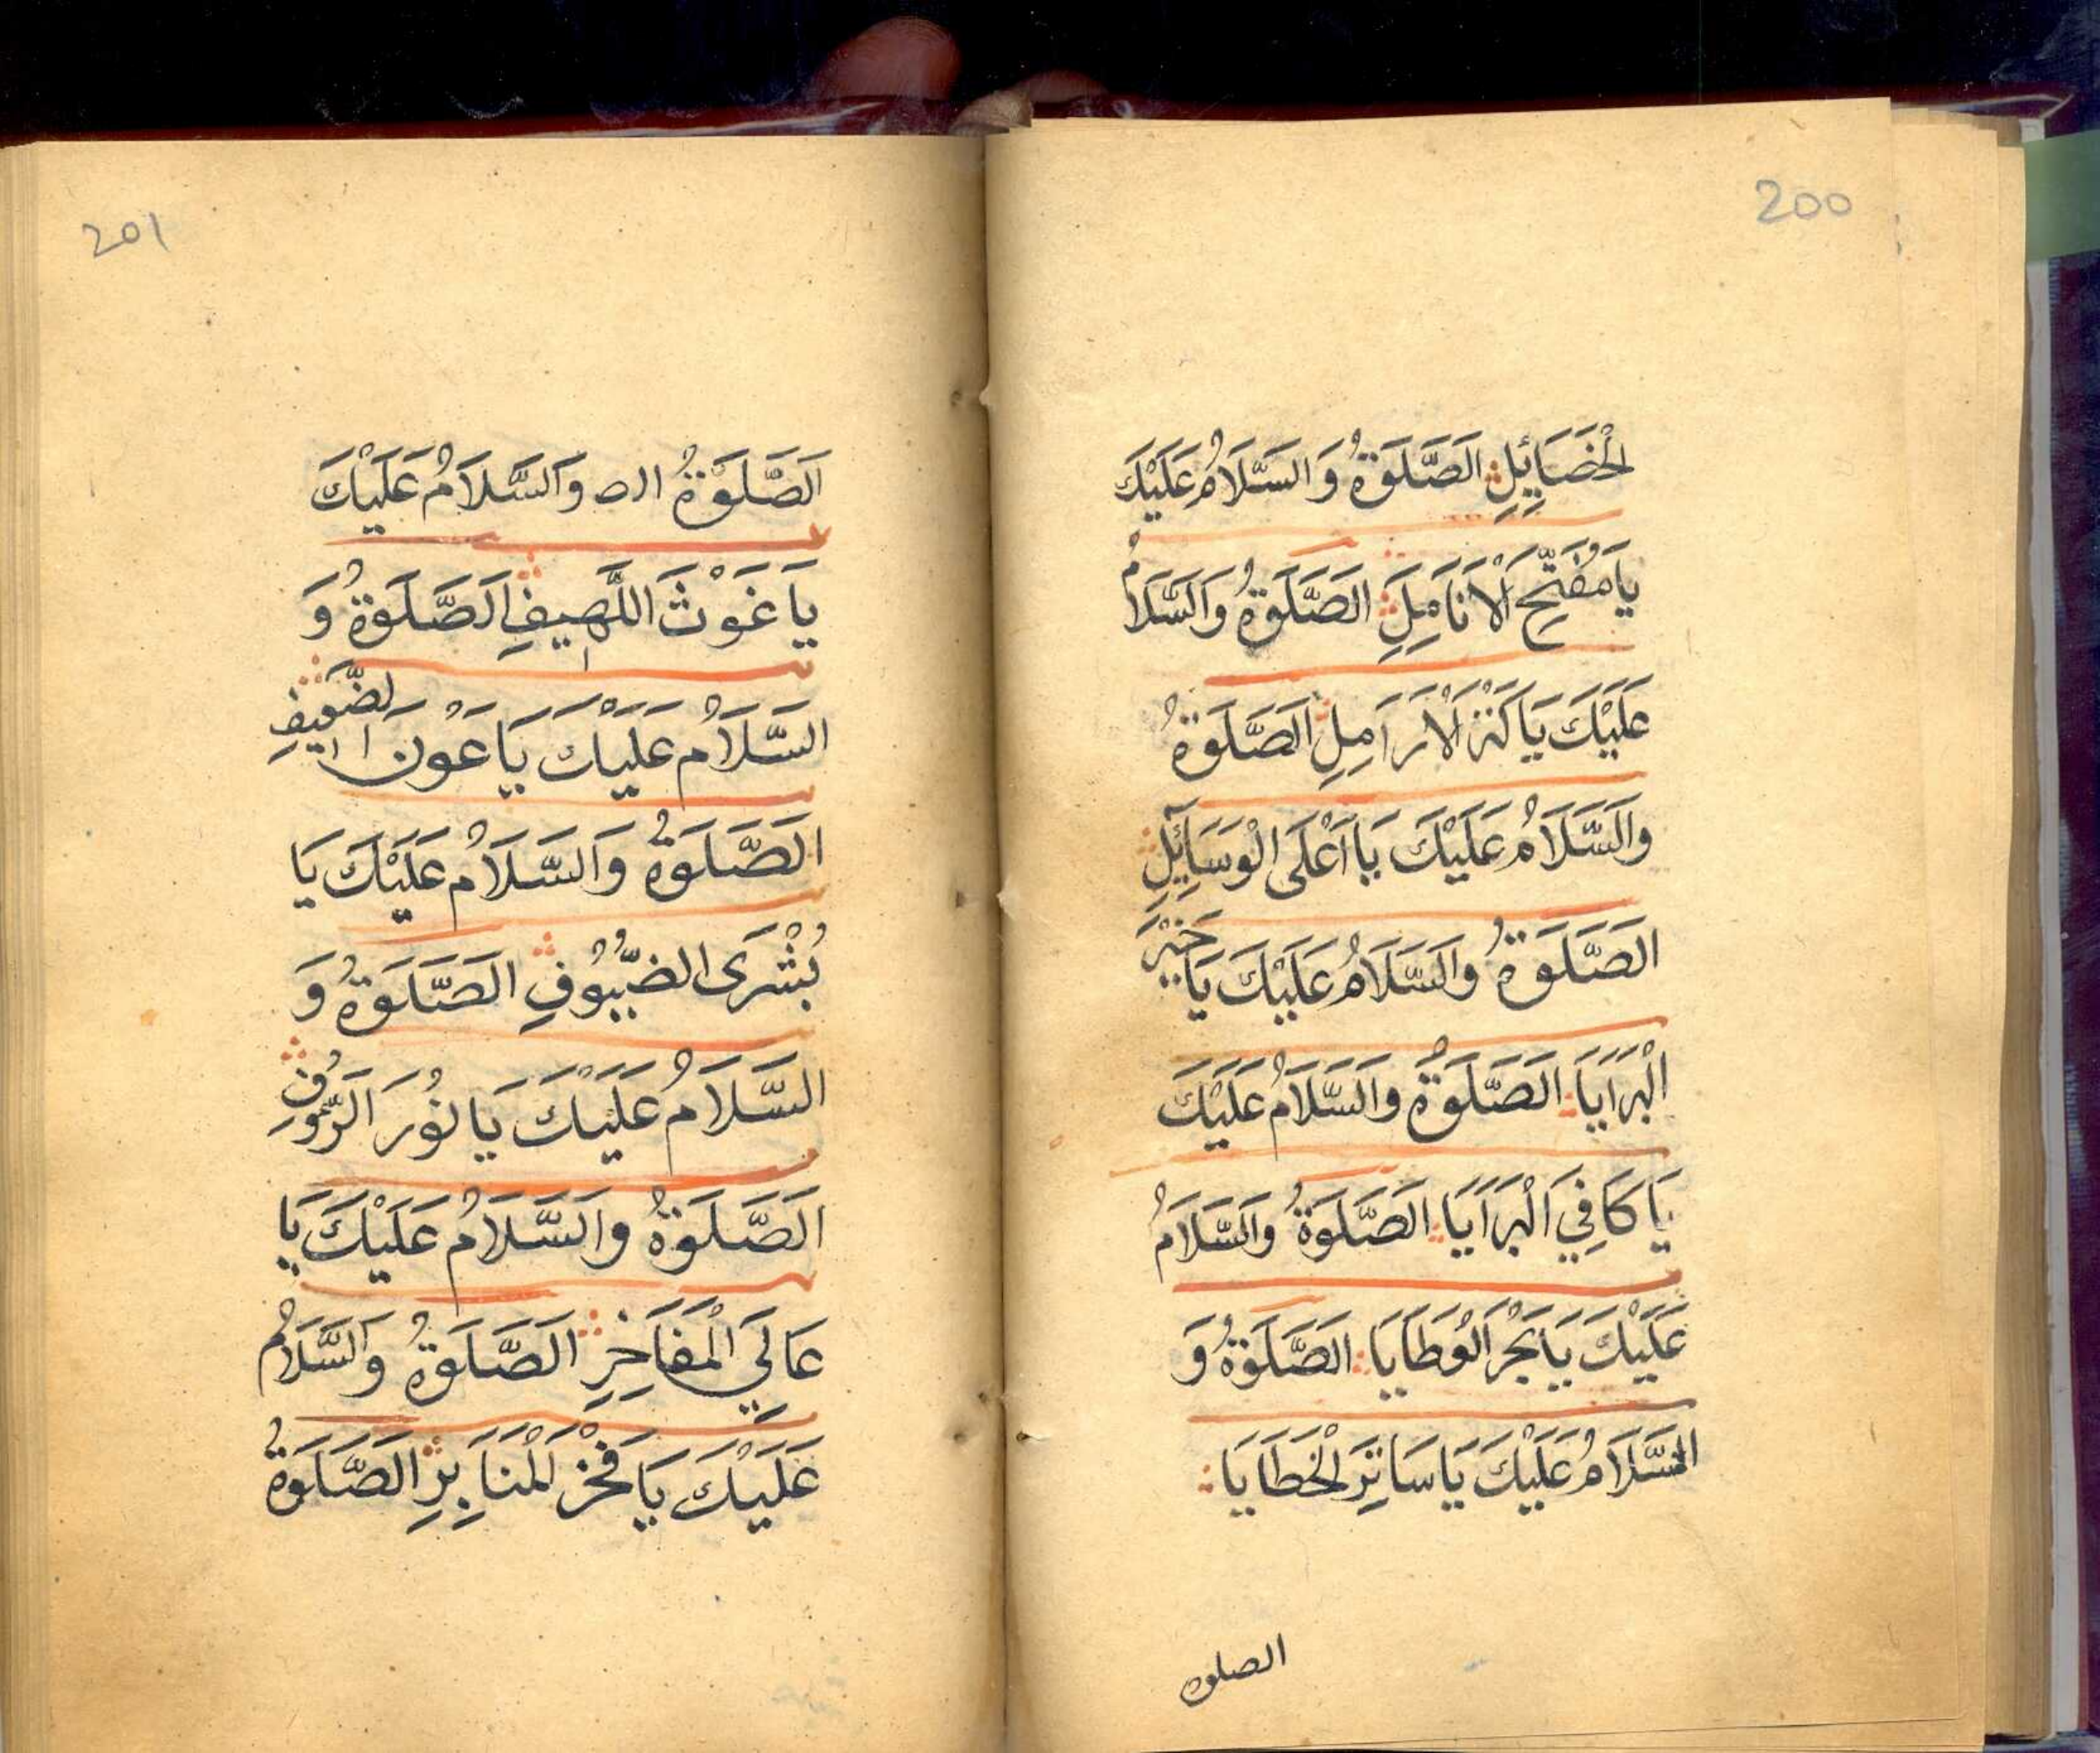 200
الْخَصَائِلِ الصَّلَوةُ وَالسَّلَامُ عَلَيْكَ
يَا مُفَتِّحَ الْاَنَامِلِ الصَّلَوةُ وَالسَّلَامُ
عَلَيْكَ يَا كَنْزَ الْاَرَامِلِ الصَّلَوةُ
وَالسَّلَامُ عَلَيْكَ يَا اَعْلَى الْوَسَآئِلِ
الصَّلَوةُ وَالسَّلَامُ عَلَيْكَ يَا خَيْرَ
الْبَرَايَا الصَّلَوةُ وَالسَّلَامُ عَلَيْكَ
يَا كَافِيَ الْبَرَايَا الصَّلَوةُ وَالسَّلَامُ
عَلَيْكَ يَا بَحْرَ الْعَطَايَا الصَّلَوةُ وَ
السَّلَامُ عَلَيْكَ يَا سَاتِرَ الْخَطَايَا
الصلوه
201
اَلصَّلَوةُ وَالسَّلَامُ عَلَيْكَ
يَا غَوْثَ اللَّهِيفِ اَلصَّلَوةُ وَ
السَّلَامُ عَلَيْكَ يَا عَوْنَ الضَّعِيفِ
الصَّلَوةُ وَالسَّلَامُ عَلَيْكَ يَا
بُشْرَى الضُّيُوفِ الصَّلَوةُ وَ
السَّلَامُ عَلَيْكَ يَا نُورَ الرَّءُوفِ
الصَّلَوةُ وَالسَّلَامُ عَلَيْكَ يَا
عَالِيَ الْمَفَاخِرِ الصَّلَوةُ وَالسَّلَامُ
عَلَيْكَ يَا فَخْرَ الْمَنَابِرِ الصَّلَوةُ